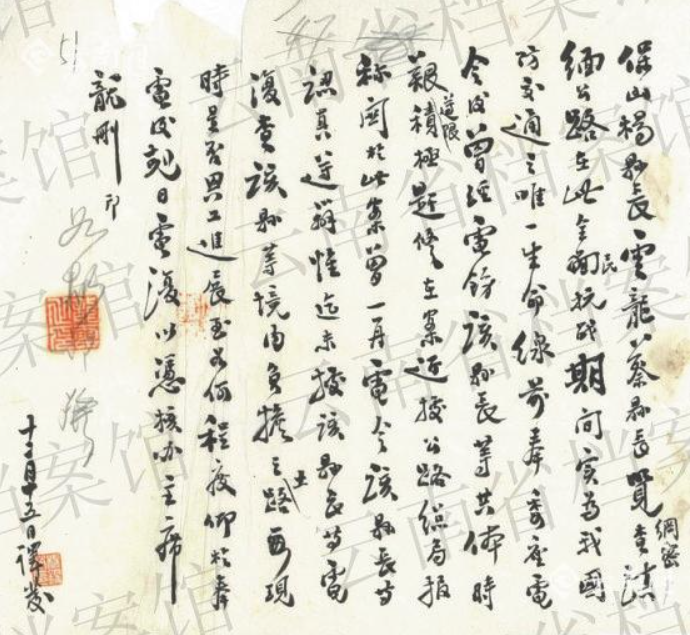 保山楊縣長雲龍蔡縣長覽綱密查滇
緬公路在此全民抗战期間實為我國
防交通之唯一生命線前奉委座電
令後曾經電飭該縣長等共体時
艱遵限積極趕修在案近據公路總局報
称関於此案曾一再電令該縣長等
認真遵辦惟迄未據該縣長等電
復查該縣等境内負擔之土路現
時是否興工進展至如何程度仰於奉
電後尅日電復以憑核办主席
龍刪印
十二月十五日譯發
51
云南省档案馆